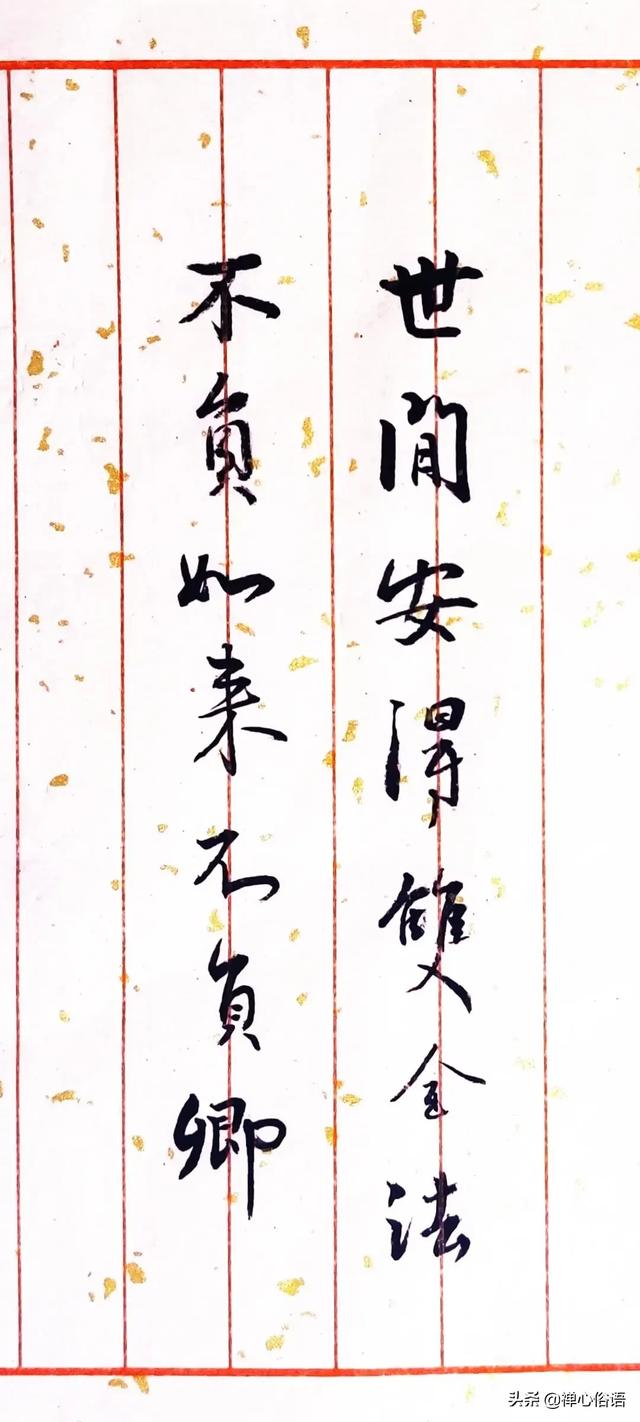 世間安得雙全法
不負如来不負卿
头条 @禅心俗语